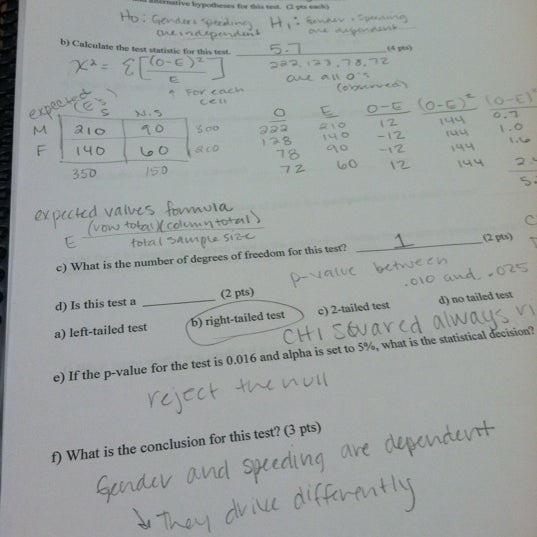 alternative hypotheses for this test. (2 pts each)
Ho: Gender & Speeding are independent
H1: Gender & Speeding are dependent
b) Calculate the test statistic for this test. 5.7 (4 pts)
X² = Σ[(O-E)²/E]
↑ For each cell
222, 128, 78, 72
are all O's
(observed)
expected (E's)
S N.S
M 210 90 300
F 140 60 200
350 150
O E O-E (O-E)² (O-E)²
222 210 12 144 0.7
128 140 -12 144 1.0
78 90 -12 144 1.6
72 60 12 144 2.4
expected values formula
E (row total)(column total)
total sample size
c) What is the number of degrees of freedom for this test? 1 (2 pts)
p-value between
.010 and .025
d) Is this test a (2 pts)
a) left-tailed test b) right-tailed test c) 2-tailed test d) no tailed test
CHI SQUARED always ri
e) If the p-value for the test is 0.016 and alpha is set to 5%, what is the statistical decision?
reject the null
f) What is the conclusion for this test? (3 pts)
Gender and speeding are dependent
& They drive differently